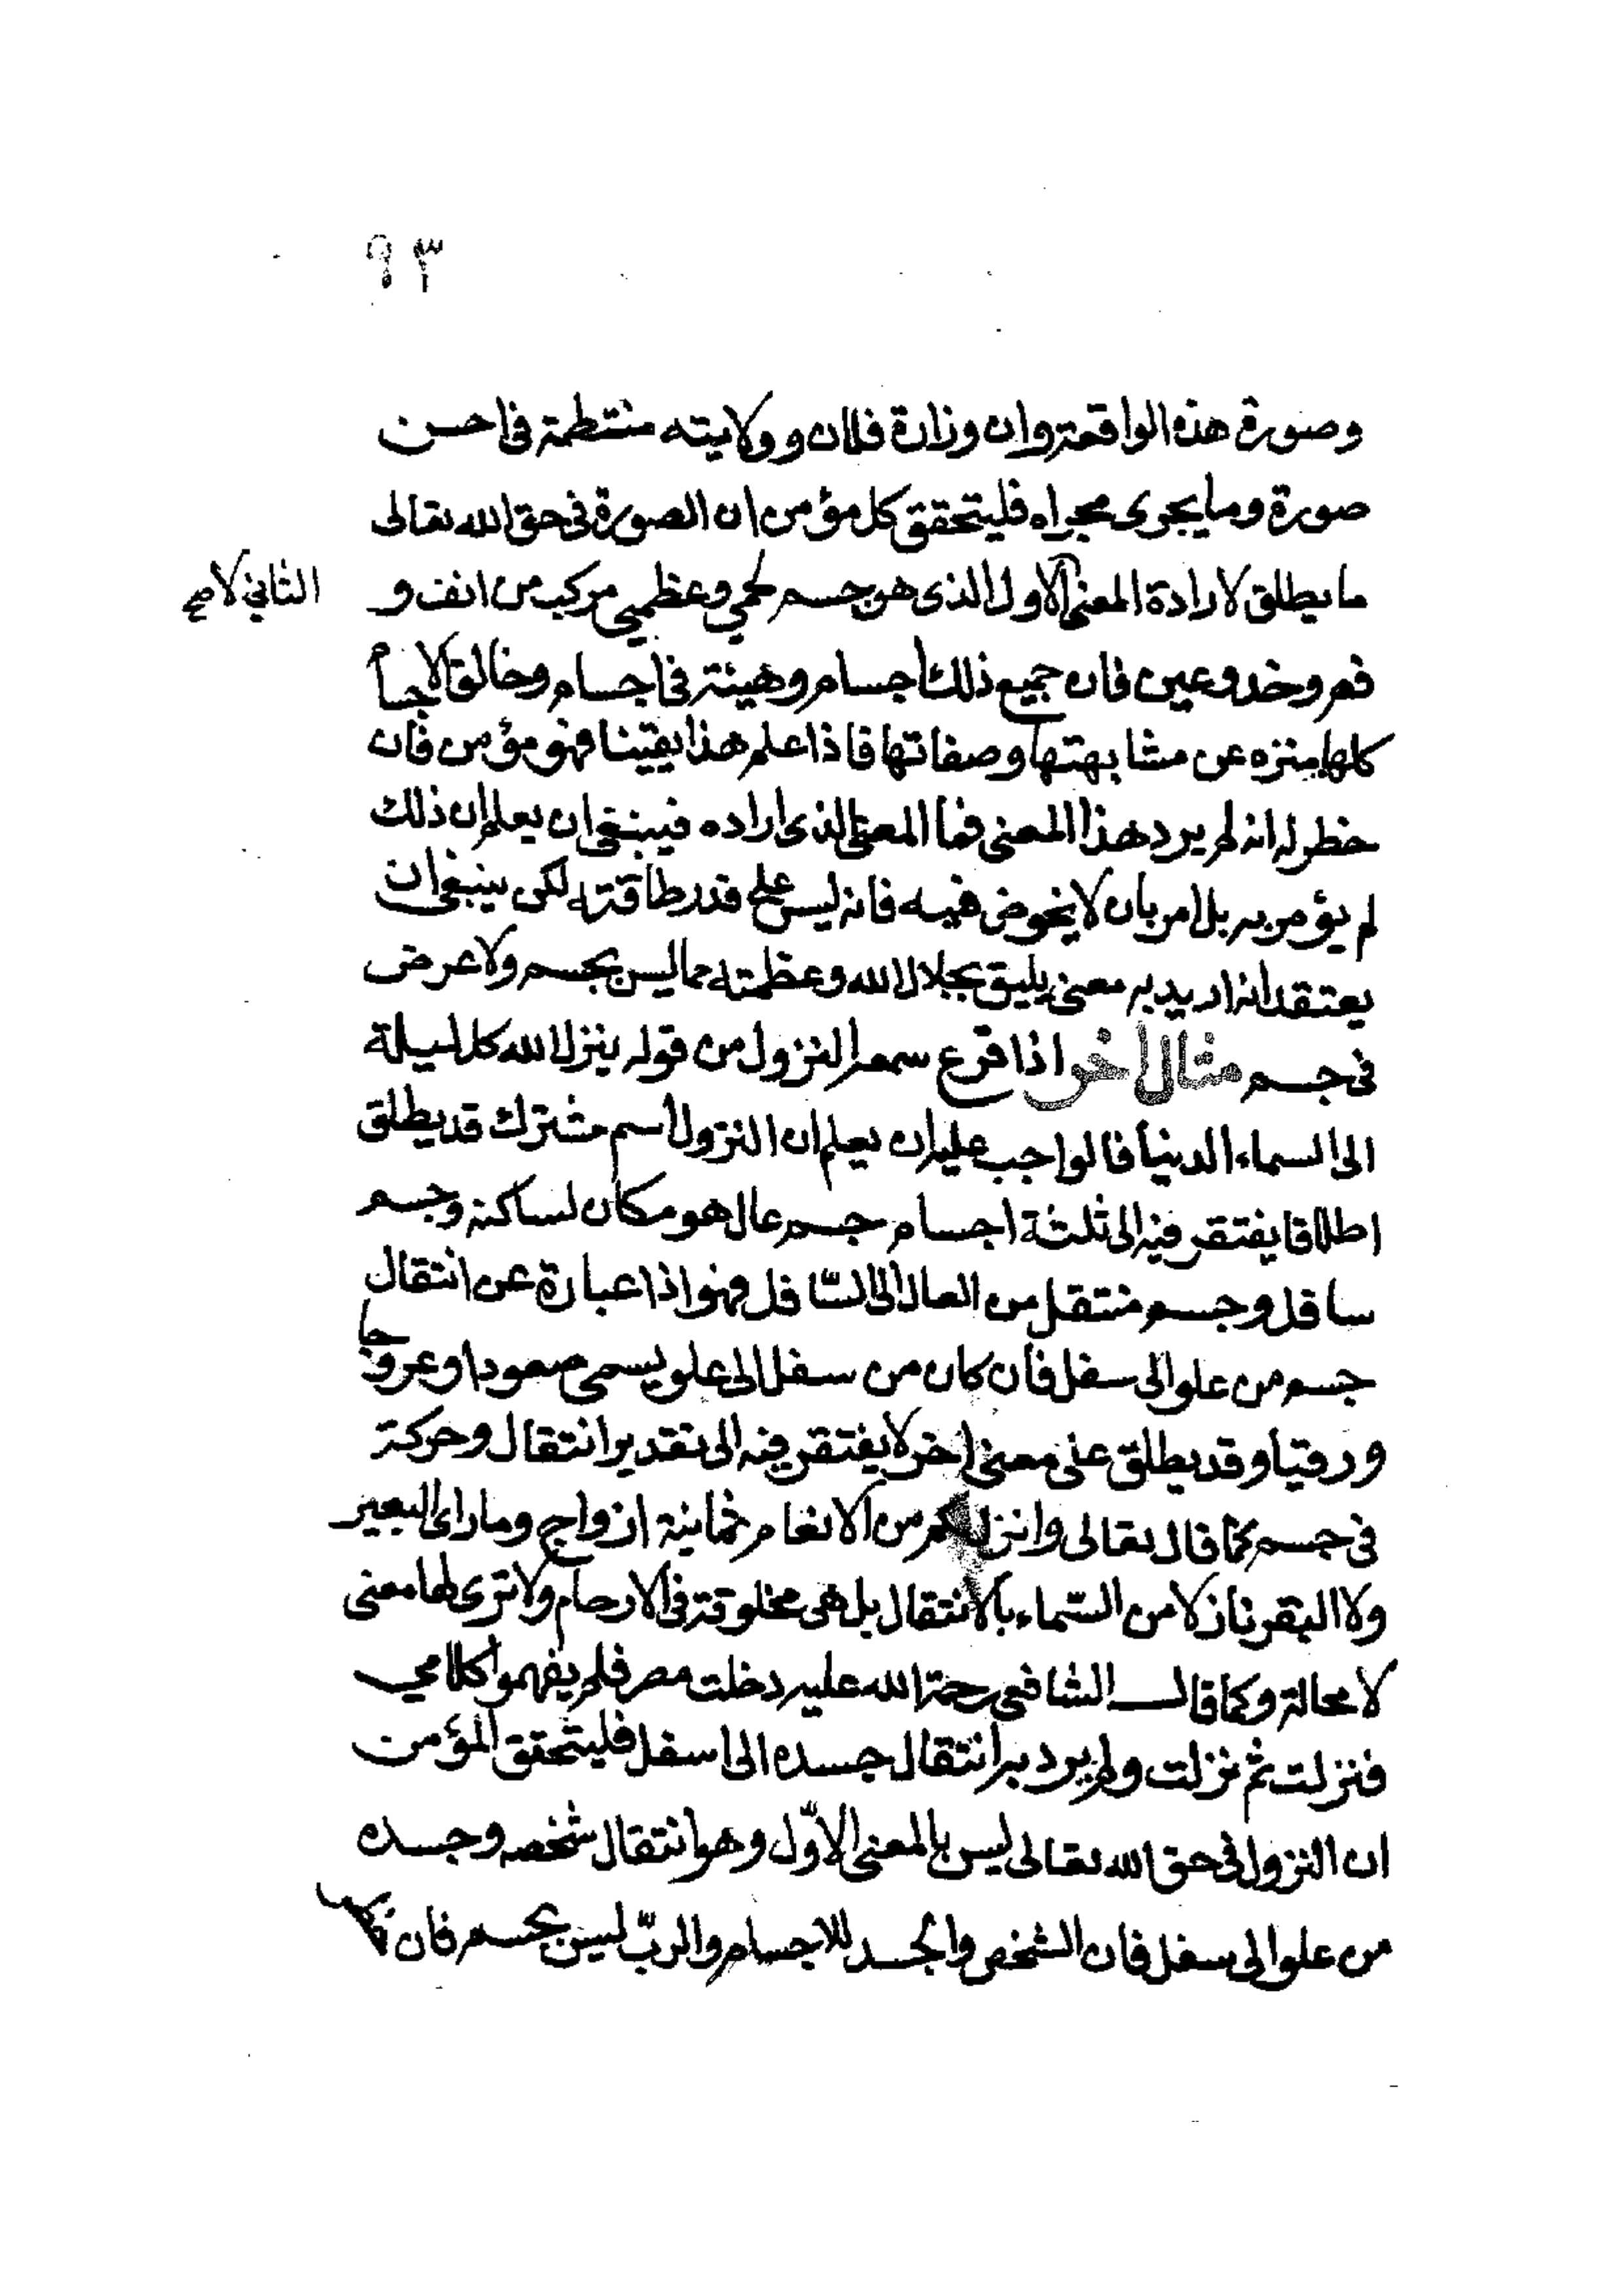 ٩٣
وصورة هذه الواقعة وان وزارة فلان وولايته منتظمة فى احسن
صورة وما يجرى مجراه فليتحقق كل مؤمن ان الصورة فى حق الله تعالى
ما يطلق لارادة المعنى الاول الذى هو جسم لحمي وعظمي مركب من انف و
الثاني لا صح
فم وخد وعين فان جميع ذلك اجسام وهيئة فى اجسام وخالق الاجسام
كلها منزه عن مشابهتها وصفاتها فاذا علم هذا يقينا فهو مؤمن فان
خطر له انه لم يرد هذا المعنى فما المعنى الذى اراده فينبغى ان يعلم ان ذلك
لم يؤمر به بل امر بان لا يخوض فيه فانه ليس على قدر طاقته لكن ينبغى ان
يعتقد انه اريد به معنى يليق بجلال الله وعظمته مما ليس بجسم ولا عرض
فى جسم مثال اخر اذا قرع سمعه النزول من قوله ينزل الله كل ليلة
الى السماء الدنيا فالواجب عليه ان يعلم ان النزول اسم مشترك قد يطلق
اطلاقا يفتقر فيه الى ثلثة اجسام جسم عال هو مكان لساكنه وجسم
سافل وجسم منتقل من العال الى السّافل فهو اذا عبارة عن انتقال
جسم من علو الى سفل فان كان من سفل الى علو يسمى صعودا وعروجا
ورقيا وقد يطلق على معنى اخر لا يفتقر فيه الى تقدير انتقال وحركة
فى جسم كما قال تعالى وانزل لكم من الانعام ثمانية ازواج وما راى البعير
ولا البقر نازلا من السّماء بالانتقال بل هى مخلوقة فى الارحام ولا ترى لها معنى
لا محالة وكما قال الشافعى رحمة الله عليه دخلت مصر فلم يفهموا كلامي
فنزلت ثم نزلت ولم يرد به انتقال جسده الى اسفل فليتحقق المؤمن
ان النزول فى حق الله تعالى ليس بالمعنى الاوّل وهو انتقال شخصه وجسده
من علو الى سفل فان الشخص والجسد للاجسام والربّ ليس بجسم فان